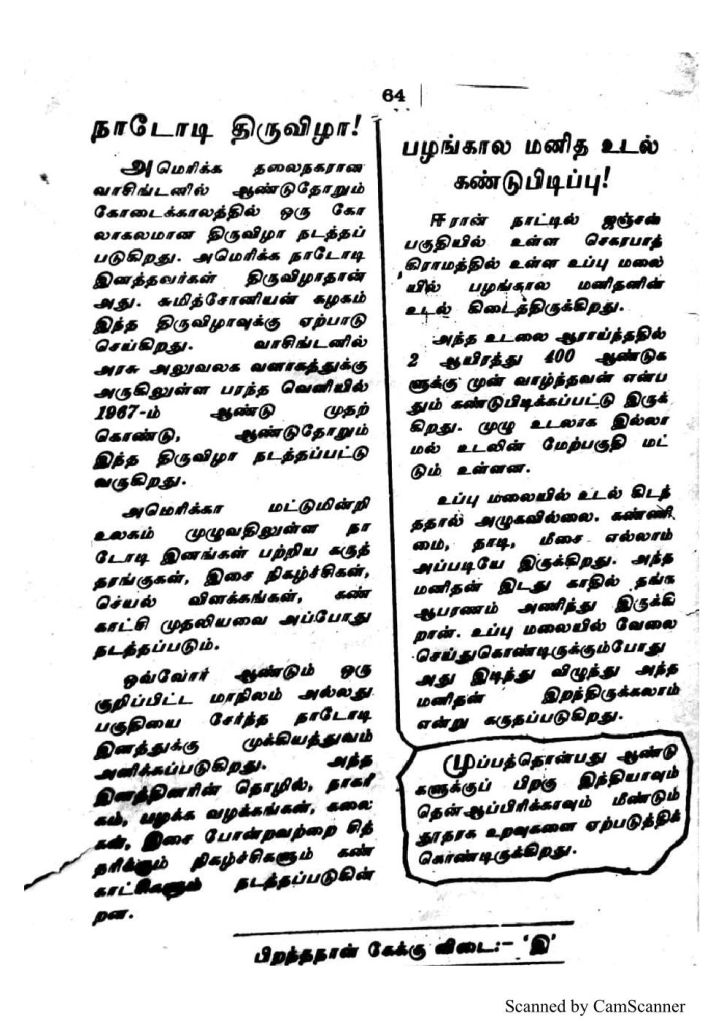 64
நாடோடி திருவிழா!
அமெரிக்க தலைநகரான
வாசிங்டனில் ஆண்டுதோறும்
கோடைக்காலத்தில் ஒரு கோ
லாகலமான திருவிழா நடத்தப்
படுகிறது. அமெரிக்க நாடோடி
இனத்தவர்கள் திருவிழாதான்
அது. சுமித்சோனியன் கழகம்
இந்த திருவிழாவுக்கு ஏற்பாடு
செய்கிறது. வாசிங்டனில்
அரசு அலுவலக வளாகத்துக்கு
அருகிலுள்ள பரந்த வெளியில்
1967-ம் ஆண்டு முதற்
கொண்டு, ஆண்டுதோறும்
இந்த திருவிழா நடத்தப்பட்டு
வருகிறது.
அமெரிக்கா மட்டுமின்றி
உலகம் முழுவதிலுள்ள நா
டோடி இனங்கள் பற்றிய கருத்
தரங்குகள், இசை நிகழ்ச்சிகள்,
செயல் விளக்கங்கள், கண்
காட்சி முதலியவை அப்போது
நடத்தப்படும்.
ஒவ்வோர் ஆண்டும் ஒரு
குறிப்பிட்ட மாநிலம் அல்லது
பகுதியை சேர்ந்த நாடோடி
இனத்துக்கு முக்கியத்துவம்
அளிக்கப்படுகிறது. அந்த
இனத்தினரின் தொழில், நாகரீ
கம், பழக்க வழக்கங்கள், கலை
கள், இசை போன்றவற்றை சித்
தரிக்கும் நிகழ்ச்சிகளும் கண்
காட்சிகளும் நடத்தப்படுகின்
றன.
பழங்கால மனித உடல்
கண்டுபிடிப்பு!
ஈரான் நாட்டில் ஜஞ்சன்
பகுதியில் உள்ள செகராபாத்
கிராமத்தில் உள்ள உப்பு மலை
யில் பழங்கால மனிதனின்
உடல் கிடைத்திருக்கிறது.
அந்த உடலை ஆராய்ந்ததில்
2 ஆயிரத்து 400 ஆண்டுக
ளுக்கு முன் வாழ்ந்தவன் என்ப
தும் கண்டுபிடிக்கப்பட்டு இருக்
கிறது. முழு உடலாக இல்லா
மல் உடலின் மேற்பகுதி மட்
டும் உள்ளன.
உப்பு மலையில் உடல் கிடந்
ததால் அழுகவில்லை. கண்ணி
மை, தாடி, மீசை எல்லாம்
அப்படியே இருக்கிறது. அந்த
மனிதன் இடது காதில் தங்க
ஆபரணம் அணிந்து இருக்கி
றான். உப்பு மலையில் வேலை
செய்துகொண்டிருக்கும்போது
அது இடிந்து விழுந்து அந்த
மனிதன் இறந்திருக்கலாம்
என்று கருதப்படுகிறது.
முப்பத்தொன்பது ஆண்டு
களுக்குப் பிறகு இந்தியாவும்
தென்ஆப்பிரிக்காவும் மீண்டும்
தூதரக உறவுகளை ஏற்படுத்திக்
கொண்டிருக்கிறது.
பிறந்தநாள் கேக்கு விடை:– 'இ'
Scanned by CamScanner